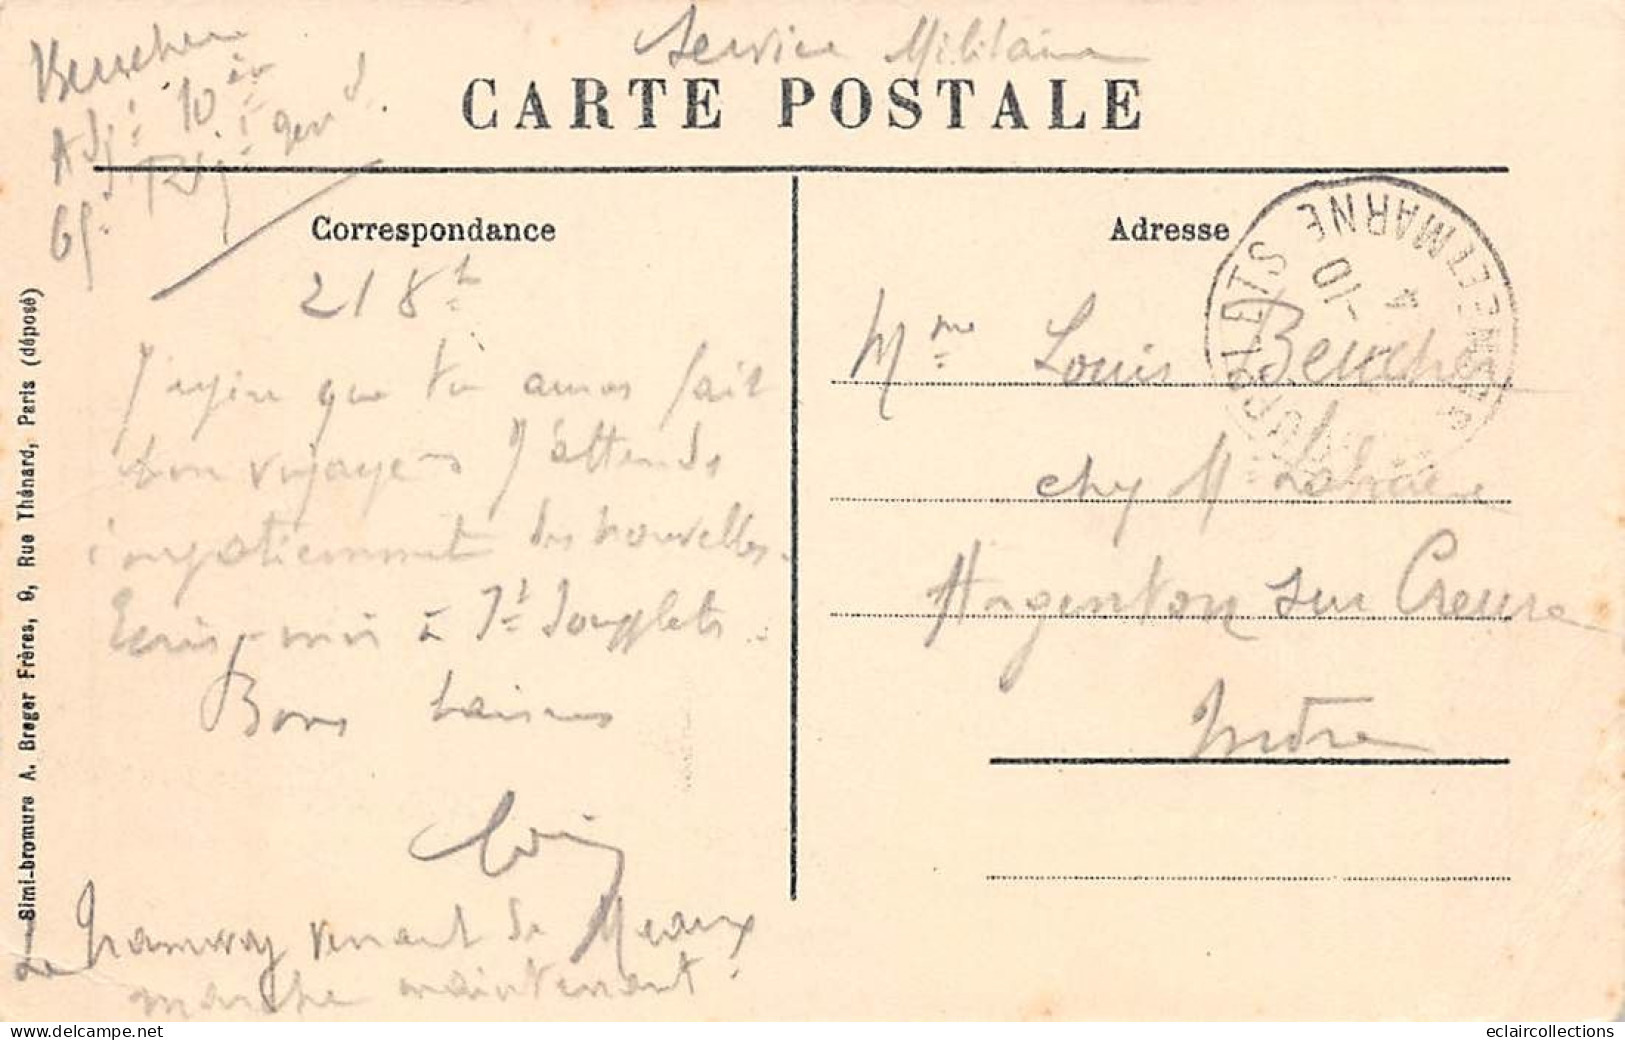 Service Militaire
Beucher
Adj.t 10
CARTE POSTALE
Correspondance
Adresse
218
J'espère que tu auras fait
bon voyage J'attends
impatiemment des nouvelles.
Ecris-moi à Jouy
Bons baisers
Louis
Le Tramway venant de Meaux
marche maintenant.
Mme Louis Beucher
chez M
Argenton sur Creuse
Indre
SEINE ET MARNE
4 -10
Simi-bromure A. Breger Frères, 9, Rue Thénard, Paris (déposé)
eclaircollections